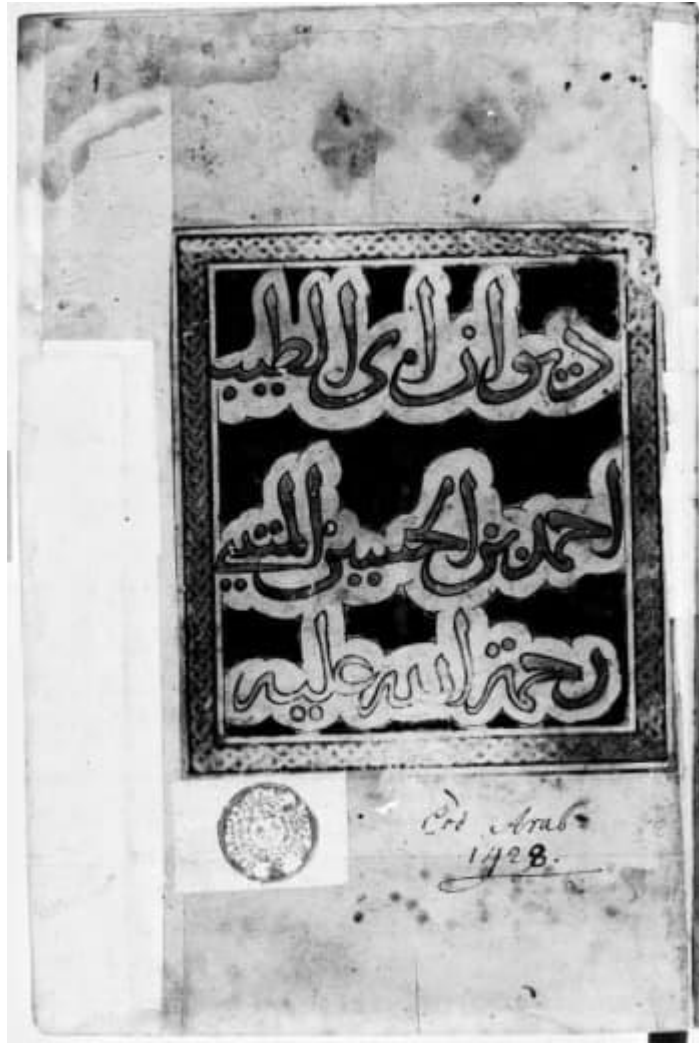 ديوان ابي الطيب
احمد بن الحسين المتنبي
رحمة الله عليه
Cod Arab
1428.